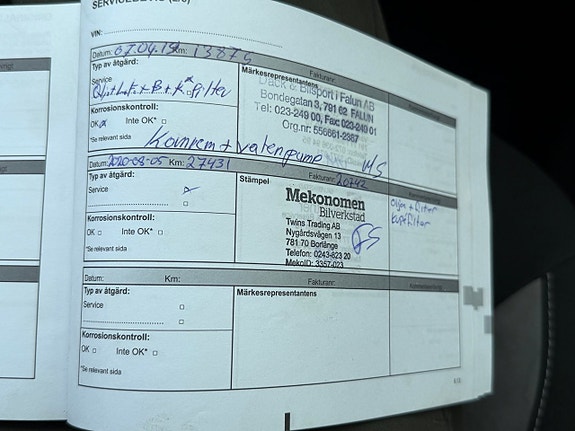 VIN:
Datum: 07.04.19 Km: 13875
Fakturanr:
Typ av åtgärd:
Service
Olja+luft+B+K filter
Märkesrepresentantens
Däck & Bilsport i Falun AB
Bondegatan 3, 791 62 FALUN
Tel: 023-249 00, Fax: 023-249 01
Org.nr: 556661-2387
Korrosionskontroll:
OK Inte OK*
*Se relevant sida
Kamrem + vatenpump
Datum: 2020-08-05 Km: 27431 Fakturanr: 20742
Typ av åtgärd:
Service
Stämpel
Mekonomen
Bilverkstad
Twins Trading AB
Nygårdsvägen 13
781 70 Borlänge
Telefon: 0243-823 20
MekoID: 3357-023
Olja + filter
kupefilter
Korrosionskontroll:
OK Inte OK*
*Se relevant sida
Datum: Km: Fakturanr:
Typ av åtgärd:
Service
Märkesrepresentantens
Korrosionskontroll:
OK Inte OK*
*Se relevant sida